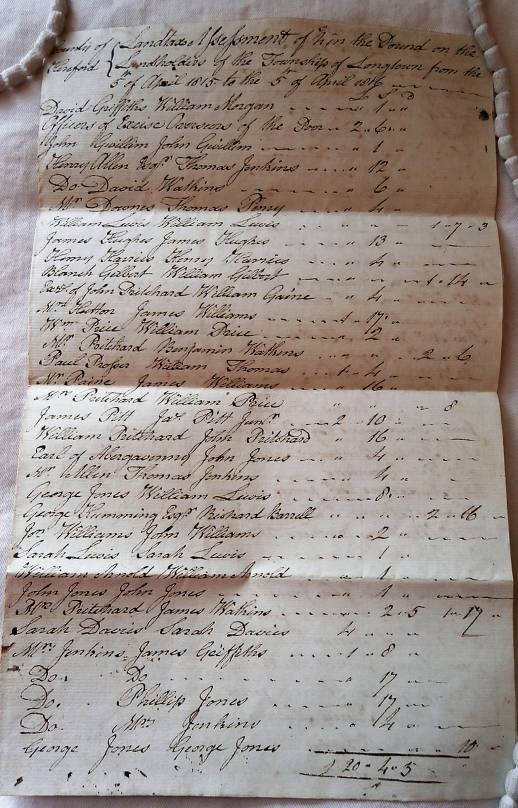 County of Hereford { Landtax Assessment, of in the Pound on the
Landholders of the Township of Longtown from the
5th of April 1815 to the 5th of April 1816
£ s d
David Griffiths William Morgan 1 "
Officers of Excise Overseers of the Poor 2 " 6 "
John Gwillim John Gwillim 1 "
Henry Allen Esqr. Thomas Jenkins 12 "
Do David Watkins 6 "
Mr Downes Thomas Perry 4 "
William Lewis William Lewis 1 " 7 " 3
James Hughes James Hughes 13 "
Henry Harries Henry Harries 4 "
Blanch Gilbert William Gilbert 1 " 14 "
of John Pritchard William Gaine 4 "
Hutton James Williams 1 " 17 "
Wm Price William Price 2 "
Mr. Pritchard Benjamin Watkins 2 " 6
Paul Prosser William Thomas 1 " 4 "
James Williams 16 "
Mr Pritchard William Price " " 8
James Pitt Jas. Pitt Junr. 2 " 10 "
William Pritchard John Pritchard " 16 "
Earl of Abergavenny John Jones " 4 "
Mr Allen Thomas Jenkins 4 "
George Jones William Lewis 8 "
George Esqr. Richard 2 " 16 "
Jos. Williams John Williams 2 "
Sarah Lewis Sarah Lewis 1 "
William Arnold William Arnold 1 "
John Jones John Jones 1 "
Pritchard James Watkins 2 " 5 1 " 17 "
Sarah Davies Sarah Davies 4 "
Jenkins James Griffiths 1 " 8 "
Do. Do 17 "
Do. Phillip Jones 17 "
Do. Mrs Jenkins 4 "
George Jones George Jones 10 "
£ 20 " 4 " 5